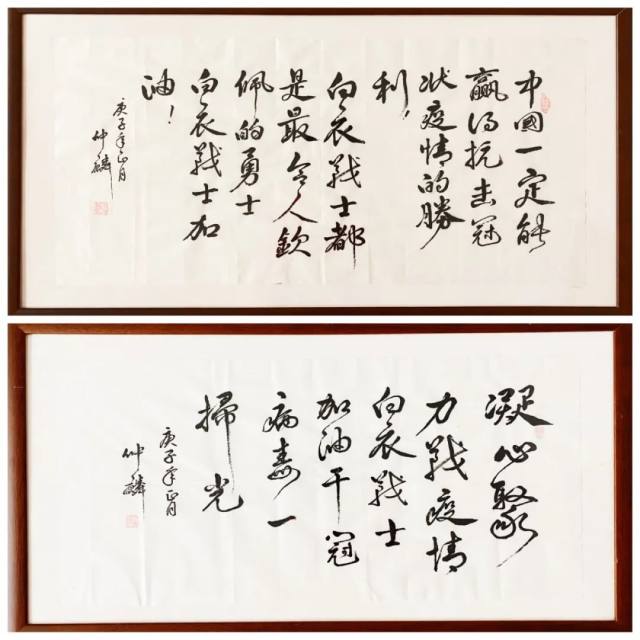 中國一定能
贏得抗击冠
狀疫情的勝
利！
白衣戰士都
是最令人欽
佩的勇士
白衣戰士加
油！
庚子年正月
仲麟
凝心聚
力戰疫情
白衣戰士
加油干冠
病毒一
掃光
庚子年正月
仲麟